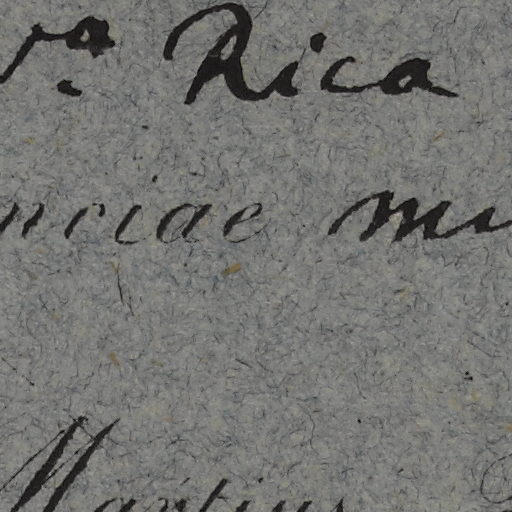 Vª. Rica
nciae mi
Martius